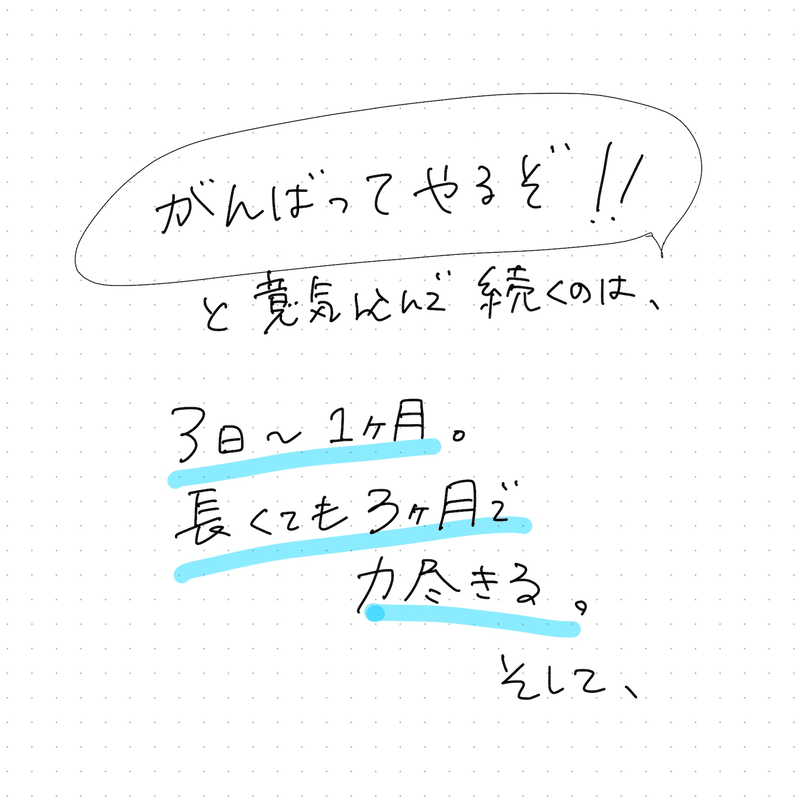 がんばってやるぞ!!
と意気込んで続くのは、
3日〜1ヶ月。
長くても3ヶ月で
力尽きる。
そして、